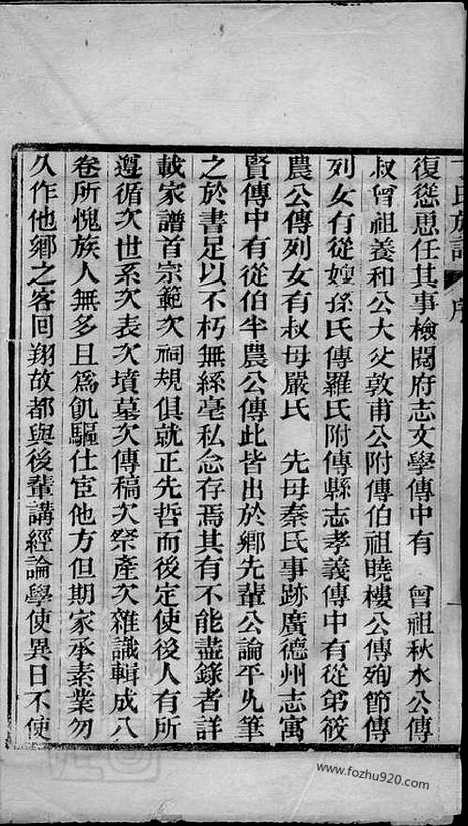 氏族譜 序 一
復慫思任其事檢閱府志文學傳中有　曾祖秋水公傳
叔曾祖養和公大父敦甫公附傳伯祖曉樓公傳殉節傳
列女有從嫂孫氏傳羅氏附傳縣志孝義傳中有從弟筱
農公傳列女有叔母嚴氏　先母秦氏事跡廣德州志寓
賢傳中有從伯半農公傳此皆出於鄉先輩公論平允筆
之於書足以不朽無絲毫私念存焉其有不能盡錄者詳
載家譜首宗範次祠規俱就正先哲而後定使後人有所
遵循次世系次表次墳墓次傳稿次祭產次雜識輯成八
卷所愧族人無多且爲飢驅仕宦他方但期家承素業勿
久作他鄉之客回翔故都與後輩講經論學使異日不使
www.fozhu920.com